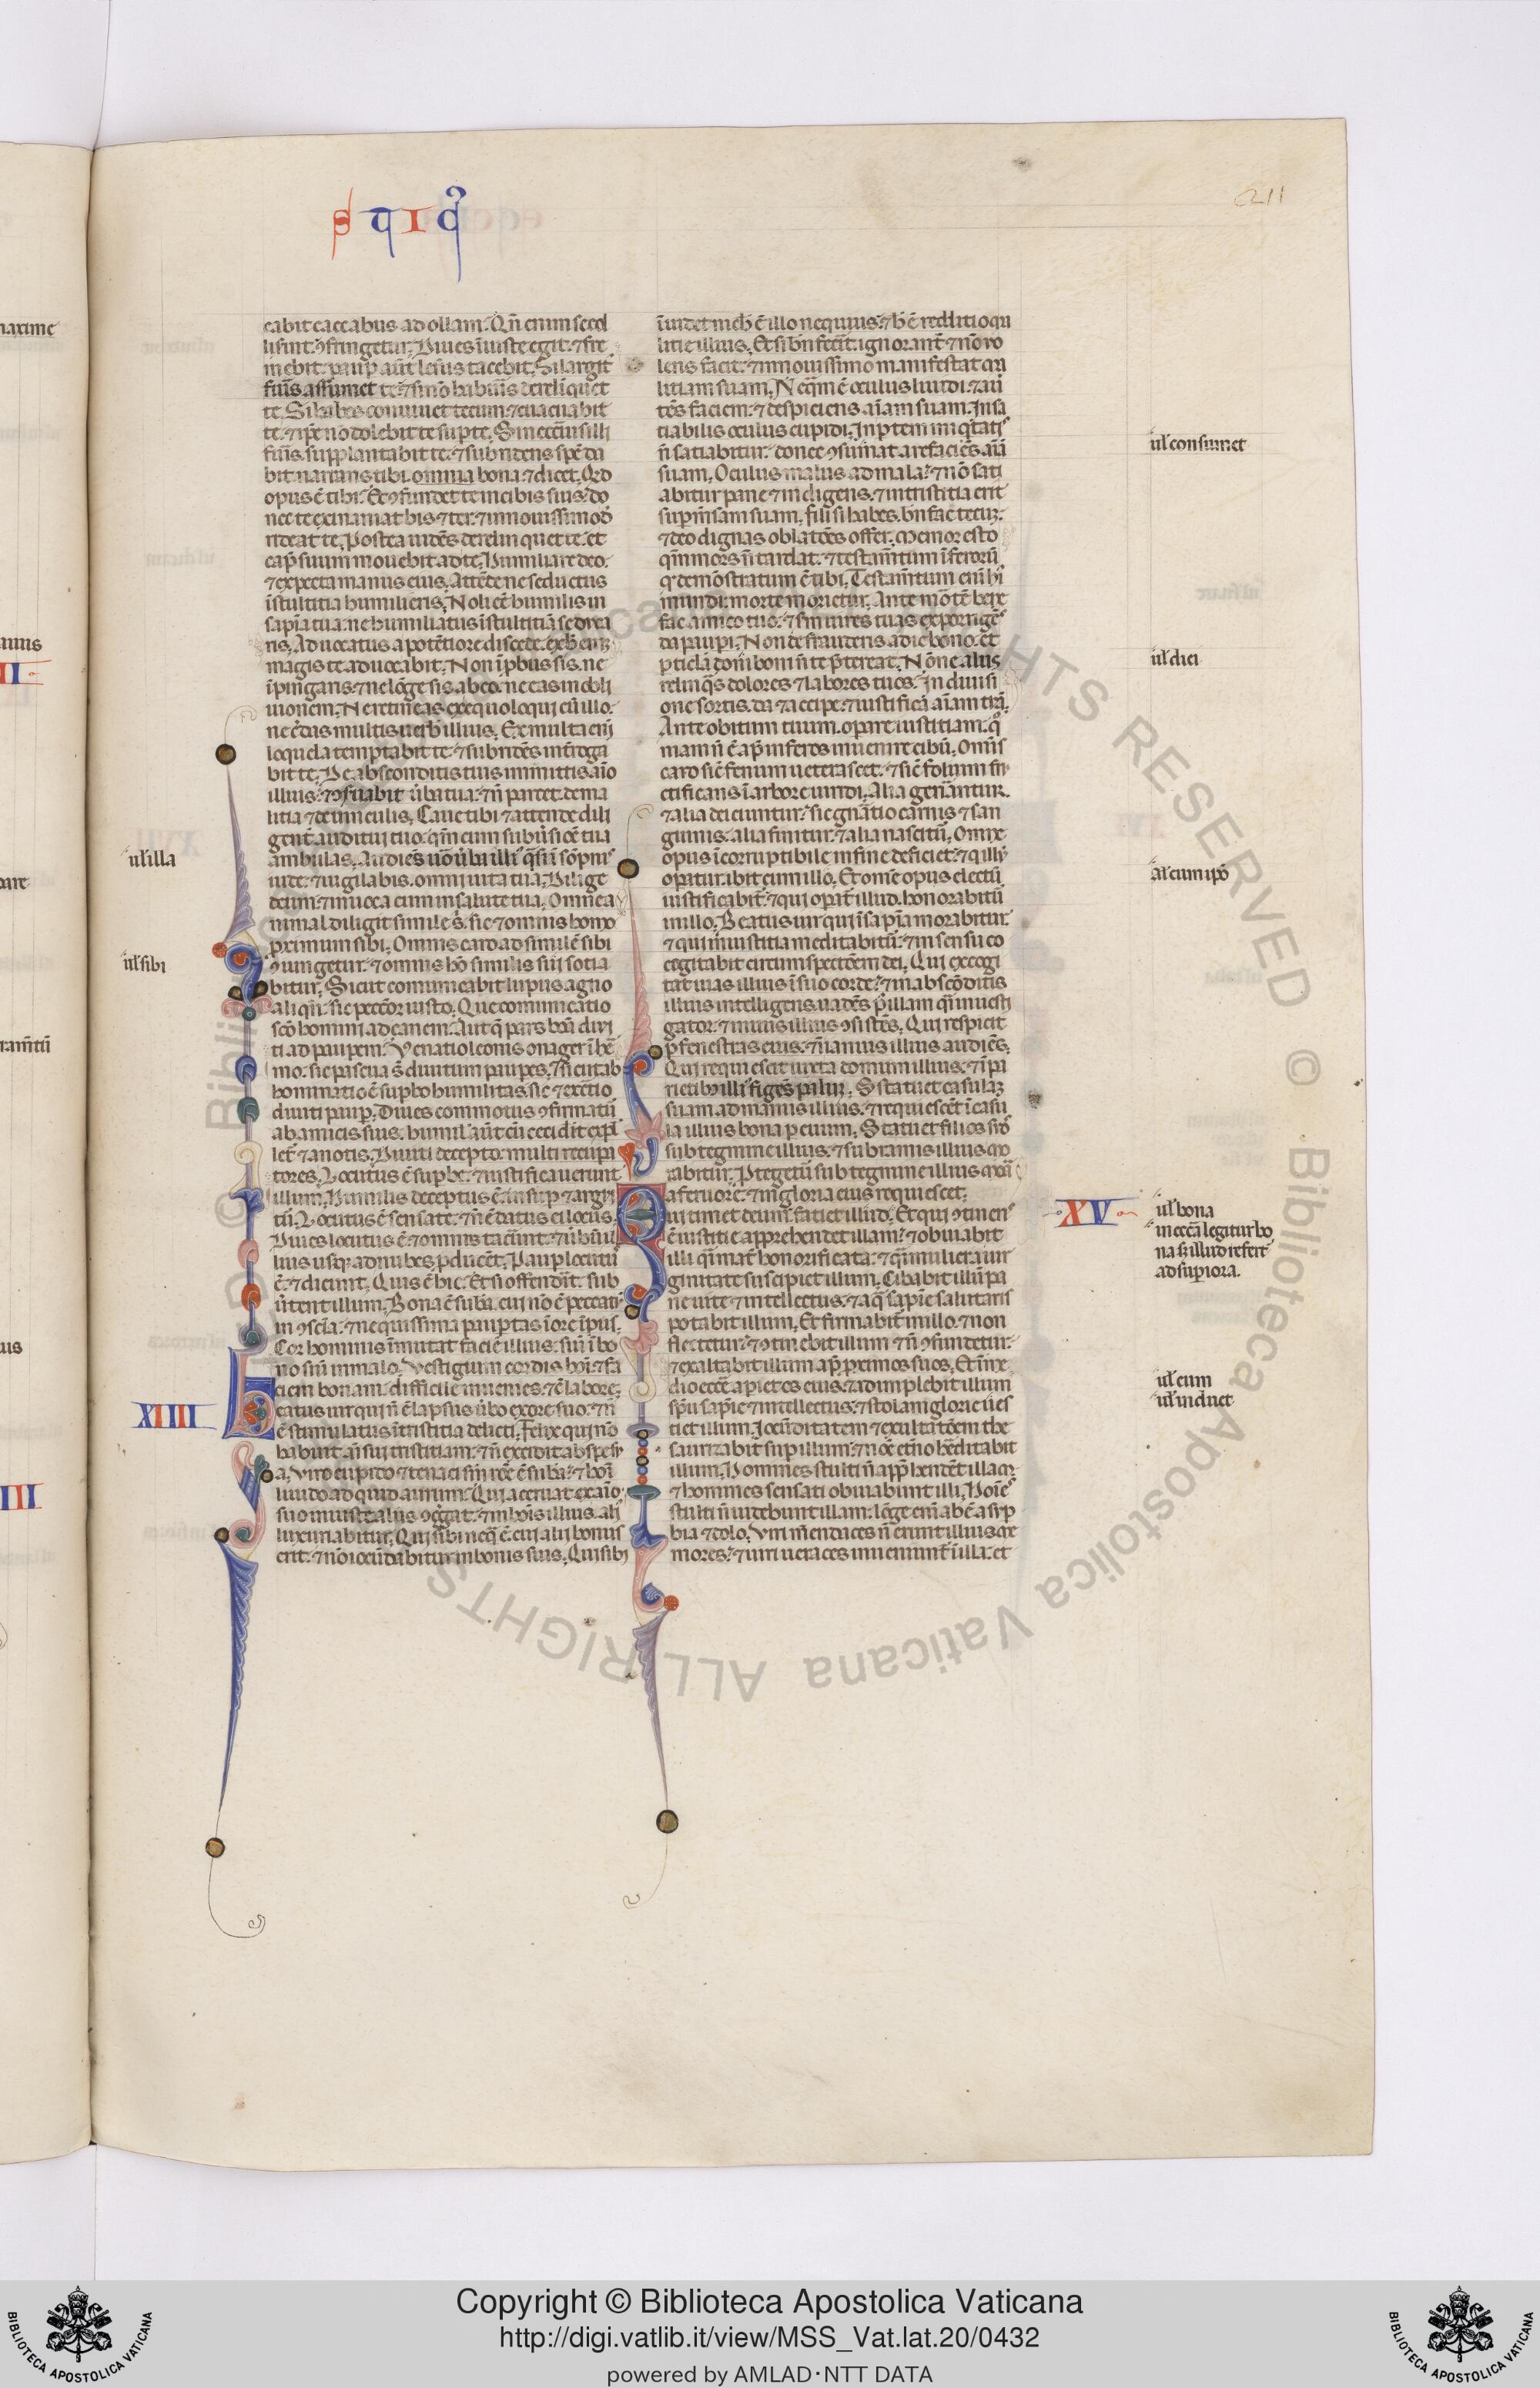 211
cabit caccabus ad ollam. Qñ enim se col
lisint: ꝯfringetur. Diues iniuste egit: ⁊ fre
mebit: paup̄ aūt lesus tacebit. Si largit
fūis assumet te: ⁊ si nō habūis derelinquet
te. Si habes conuiuet tecum: ⁊ euacuabit
te: ⁊ ip̄e nō dolebit te sup te. Si neccīus illi
fūis. supplantabit te: ⁊ subridens spē da
bit narrans tibi omnia bona: ⁊ dicet. Qd
opus ē tibi: Et ꝯfundet te in cibis suis: do
nec te exinaniat bis ⁊ ter: ⁊ in nouissimo
rideat te. Postea uidēs derelinquet te: et
cap̄ suum mouebit ad te. Humiliare deo:
⁊ expecta manus eius. Attēde ne seductus
ī stultitia humilieris. Noli eē humilis in
sapīa tua: ne humiliatus ī stultitiā seduca
ris. Aduocatus a potētiore discede: ex h̄ enī
magis te aduocabit. Non īprobus sis. ne
īpingaris: ⁊ ne lōge sis ab eo: ne eas in obli
uionem. Ne retineas ex equo loqui cū illo:
ne c̄das multis uerb illius. Ex multa enī
loquela temptabit te: ⁊ subridēs int̄roga
bit te. De absconditis tuis. immitis aīo
illius: ⁊ ꝯseruabit ūba tua: ⁊ nō parcet de ma
litia ⁊ de uinculis. Caue tibi ⁊ attende dili
gent̄ auditui tuo: qm̄ cum subūsiōe tua
ambulas. Audiēs
uide: ⁊ uigilabis. omni uita tua. Dilige
deum: ⁊ inuoca eum in salute tua. Omne a
nimal diligit simile s: sic ⁊ omnis homo
proximum sibi. Omnis caro ad similē sibi
ꝯiungetur: ⁊ omnis hō simili suī sotia
bitur. Sicut comunicabit lupus agno
aliqñ: sic peccōr iusto. Que comunicatio
scō homini ad canem: Aut q̄ pars boni diui
ti ad paupem: Venatio leonis onager ī he
mo: sic pascua s̄ diuitum paupes. Et sicut ab
hominatio ē supbo humilitas: sic ⁊ execrātio
diuiti paup. Diues commotus ꝯfirmatū
ab amicis suis: humil aūt cū cecidit expel
let ⁊ a notis. Diuiti decepto: multi recupa
tores. Locutus ē supbe: ⁊ iustificauerunt
illum. Humilis deceptus ē: insup ⁊ argui
tū. Locutus ē sensate: ⁊ nō ē datus ei locus.
Diues locutus ē: ⁊ omnes tacūunt: ⁊ ūbū il
lius usq; ad nubes pducēt. Paup locutus
ē: ⁊ dicunt. Quis ē hic: Et si offenderit: sub
ūtent illum. Bona ē suba. cui nō ē peccatū
in ꝯscīa: ⁊ nequissima paupertas ī ore īpii.
Cor hominis īmutat faciē illius: siue ī bo
no siue in malo. Vestigium cordis boni: ⁊ fa
ciem bonam difficile inuenies: ⁊ cū labore.
XIIII
Beatus uir qui nō ē lapsus ūbo ex ore suo: ⁊ nō
ē stimulatus ī tristitia delicti. Felix qui nō
habuit aī sui tristitiam: ⁊ nō excidit ab spe su
a. Viro cupido ⁊ tenaci sine rōe ē suba: ⁊ hoī
liuido ad quid aurum: Qui aceruat ex aīo
suo iniuste aliis ꝯgregat: ⁊ in bonis illius. ali
luxuriabitur. Qui sibi neq̄ ē. cui alii bonus
erit: ⁊ nō iocūdabitur in bonis suis. Qui sibi
ul illa
ul sibi
īuidet nich ē illo nequius: ⁊ h̄ ē redditio ma
litie illius. Et si bn̄ fecerit: ignorant̄ ⁊ nō uo
lens facit: ⁊ in nouissimo manifestat ma
litiam suam. Neq̄m ē oculus liuidi: ⁊ aū
tēs faciem: ⁊ despiciens aīam suam. Insa
tiabilis oculus cupidi. In ptem iniq̄tatis
nō satiabitur: donec ꝯsumat arefaciēs aīā
suam. Oculus malus ad mala: ⁊ nō sati
abitur pane: ⁊ indigens. ⁊ in tristitia erit
sup mēsam suam. Fili si habes. bn̄ fac tecū:
⁊ deo dignas oblatōes offer. Memor esto
qm̄ mors nō tardat: ⁊ testam̄tum īferorū
q demōstratum ē tibi. Testam̄tum enī hī
mundi: morte morietur. Ante mōtē bene
fac amico tuo: ⁊ sm uires tuas exporrigēs
da paupi. Non defrauderis a die bono: et
pticlā doni boni nō te p̄tereat. Nōne aliis
relinq̄s dolores ⁊ labores tuos. In diuisi
one sortis. da ⁊ accipe: ⁊ iustifica aīam tuā.
Ante obitum tuum. opare iustitiam: qō
niam nō ē ap̄ inferos inuenire cibū. Omīs
caro sic̄ fenum ueterascet: ⁊ sic̄ folium fru
ctificans ī arbore uiridi. Alia genantur.
⁊ alia deiciuntur: sic gnātio carnis ⁊ san
guinis: alia finitur: ⁊ alia nascitū. Omne
opus īcorruptibile in fine deficiet: ⁊ q̄ illū
opatur. ibit cum illo. Et omē opus electū
iustificabit̄: ⁊ qui opat̄ illud. honorabitū
in illo. Beatus uir qui ī sapīa morabitur:
⁊ qui in iustitia meditabitū: ⁊ in sensu co
gitabit circumspectōem dei. Qui excogi
tat uias illius ī suo corde: ⁊ in abscōditis
illius intelligens. uadēs p̄ illam q̄si inuesti
gator: ⁊ in uiis illius ꝯsistēs. Qui respicit
p fenestras eius: ⁊ ī ianuis illius audiēs.
Qui requiescit iuxta domum illius: ⁊ ī pa
rietib illi figēs palū. Statuet casulam
suam ad manus illius: ⁊ requiescēt ī casu
la illius bona p euum. Statuet filios suos
sub tegmine illius: ⁊ sub ramis illius mo
rabitur. Protegetū sub tegmine illius
a feruore: ⁊ in gloria eius requiescet.
XV
Qui timet deum. faciet illud. Et qui ꝯtinens
ē iustitie apprehendet illam: ⁊ obuiabit
illi q̄si mat̄ honorificata: ⁊ q̄si mulier a uir
ginitate suscipiet illum. Cibabit illū pa
ne uite ⁊ intellectus: ⁊ aq̄ sapīe salutaris
potabit illum. Et firmabit̄ in illo. ⁊ non
flectetur: ⁊ ꝯtinebit illum ⁊ nō ꝯfundetur:
⁊ exaltabit illum ap̄ proximos suos. Et ī me
dio eccē apiet os eius: ⁊ adimplebit illum
spū sapīe ⁊ intellectus: ⁊ stolam glorie ues
tiet illum. Iocūditatem ⁊ exultatōem the
saurizabit sup illum: ⁊ nōe etno heditabit
illum. Homines stulti nō app̄hendēt illam:
⁊ homines sensati obuiabunt illi. Hoīes
stulti nō uidebunt illam: lōge enī abē a sup
bia ⁊ dolo. Viri mendaces nō erunt illius me
mores: ⁊ uiri ueraces inueniunt̄ ī illa: et
ul consumet
ul diei
al cum ipō
ul bona
in eccā legitur bo
na s; illud refert
ad supiora.
ul eum
ul induet
Copyright © Biblioteca Apostolica Vaticana
http://digi.vatlib.it/view/MSS_Vat.lat.20/0432
powered by AMLAD·NTT DATA
BIBLIOTECA APOSTOLICA VATICANA
BIBLIOTECA APOSTOLICA VATICANA